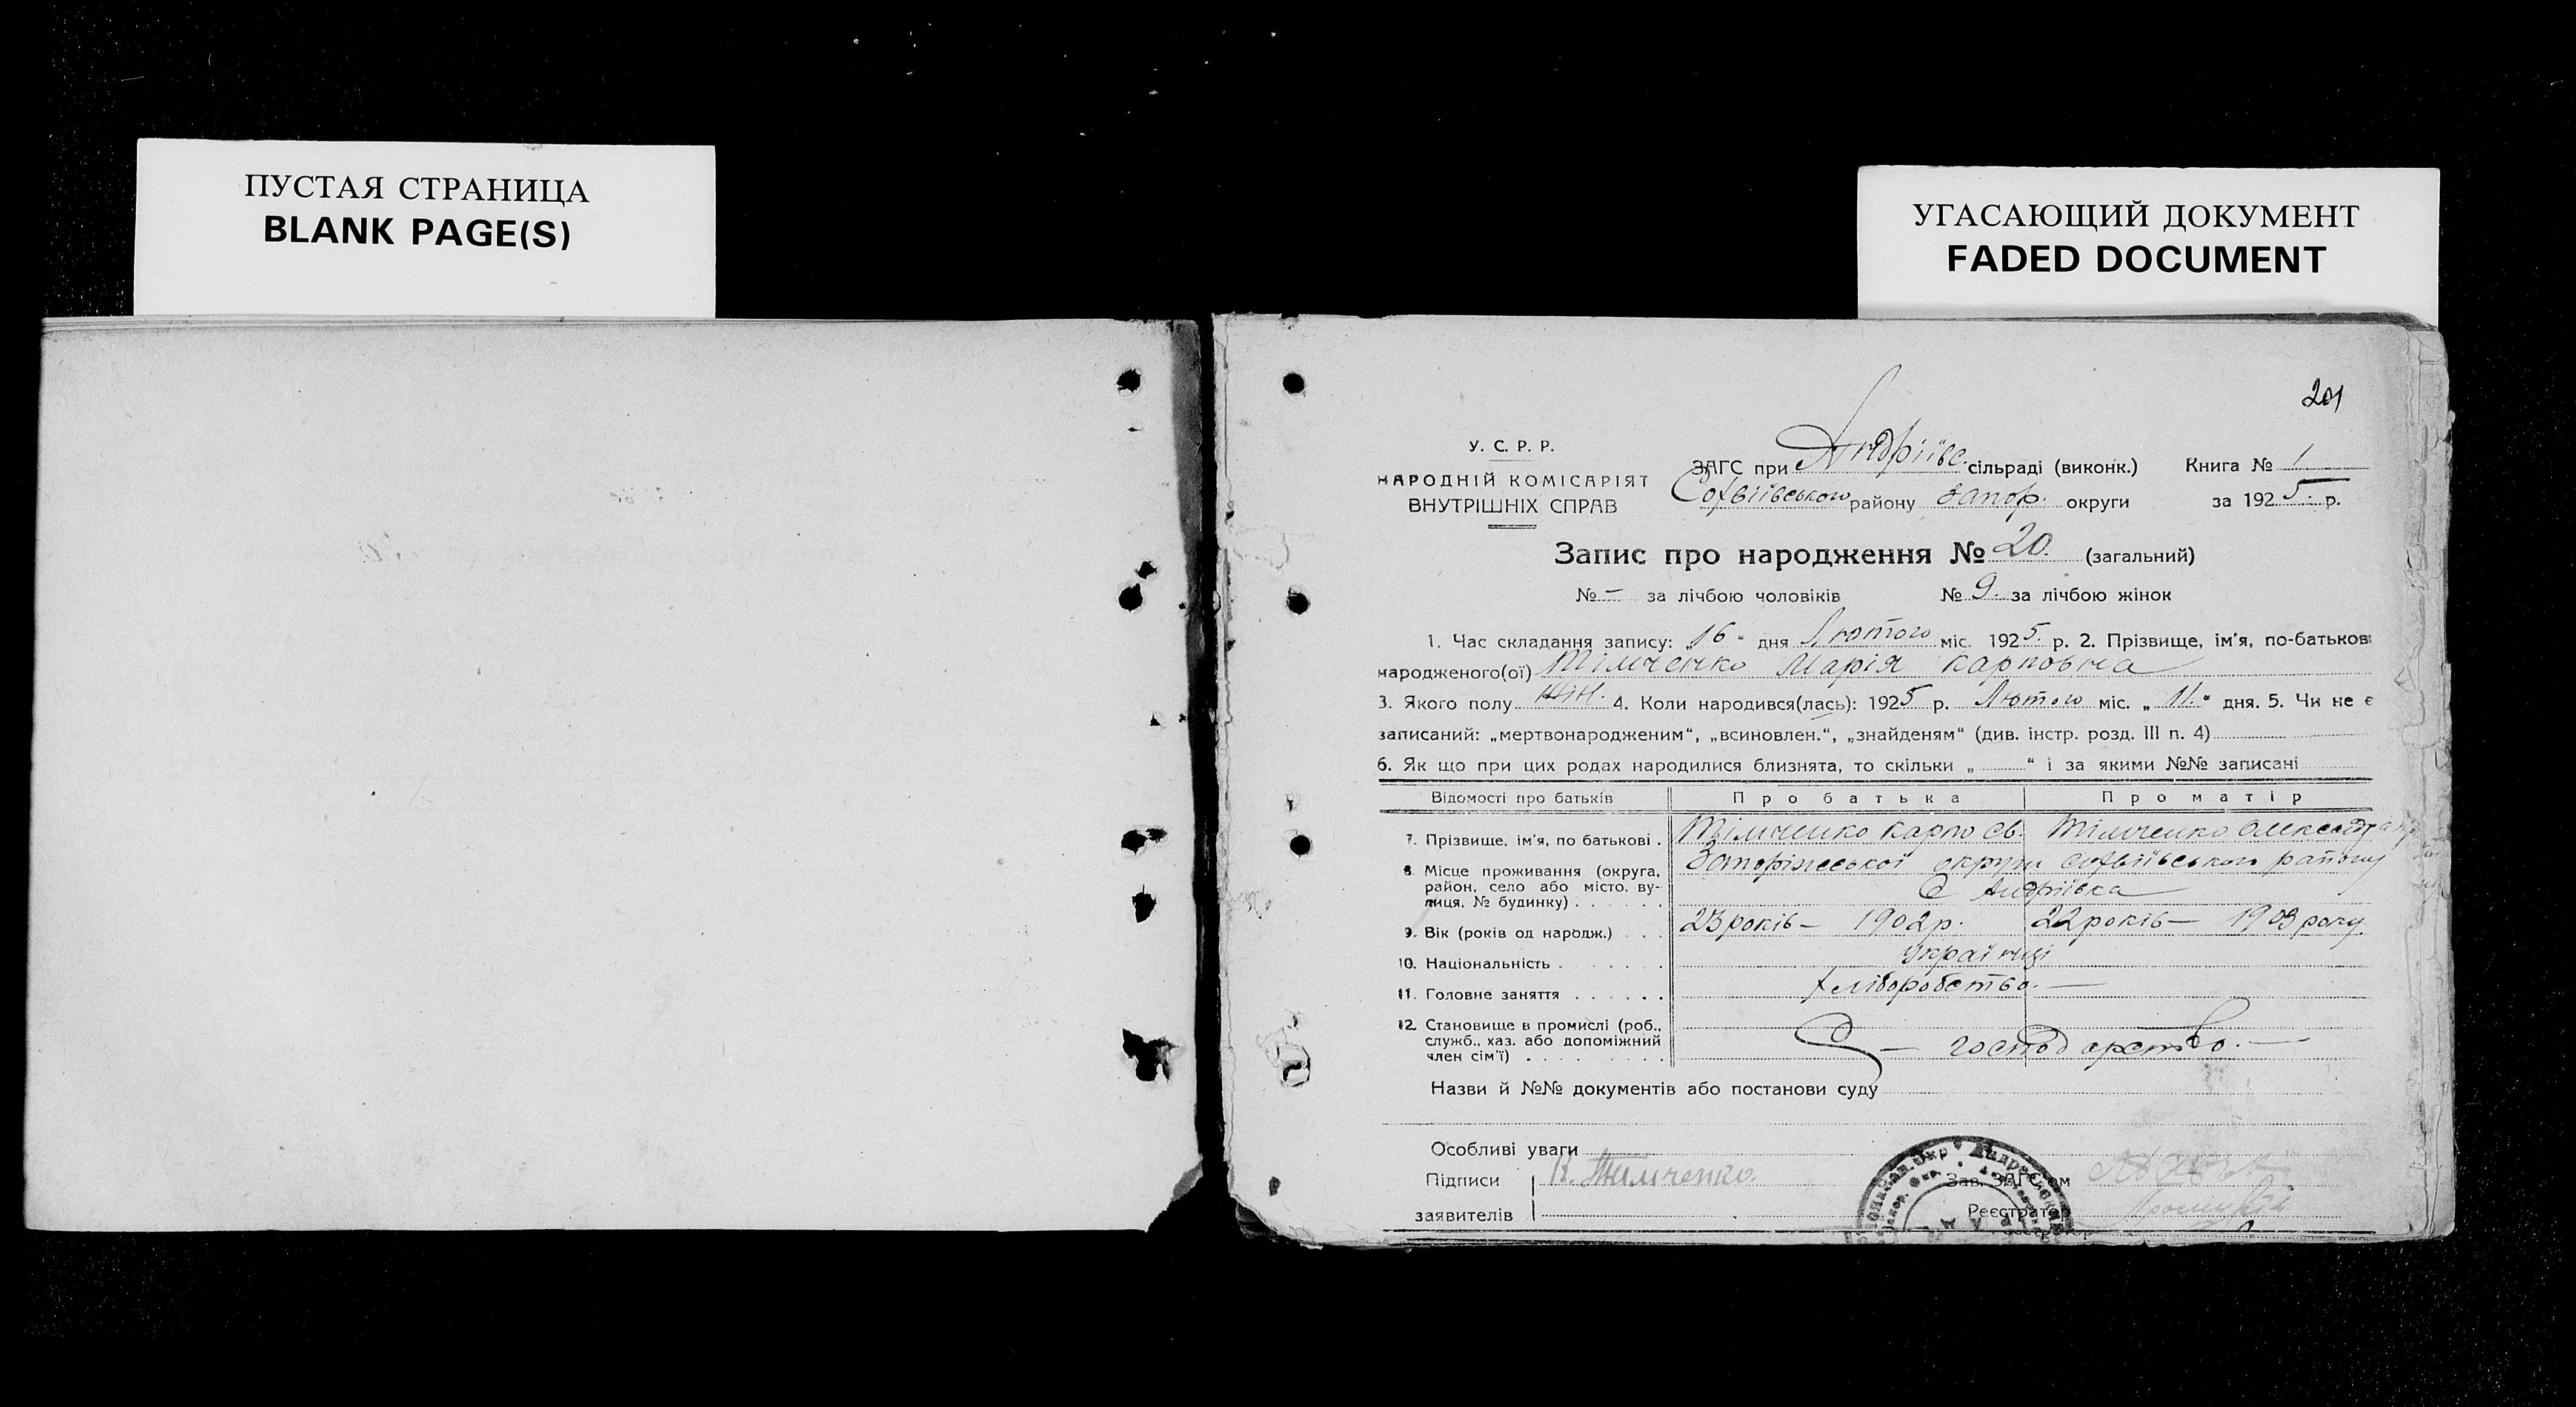 ПУСТАЯ СТРАНИЦА
BLANK PAGE(S)
УГАСАЮЩИЙ ДОКУМЕНТ
FADED DOCUMENT
201
У. С. Р. Р.
НАРОДНІЙ КОМІСАРІЯТ
ВНУТРІШНІХ СПРАВ
ЗАГС при Андріївс. сільраді (виконк.) Книга № 1
Софіївського району Запор. округи за 1925 р.
Запис про народження № 20. (загальний)
№ – за лічбою чоловіків № 9. за лічбою жінок
1. Час складання запису: „16“ дня Лютого міс. 1925. р. 2. Прізвище, ім'я, по-батькові
народженого(ої) Тімченко Марія Карповна
3. Якого полу жін. 4. Коли народився(лась): 1925 р. Лютого міс. „11.“ дня. 5. Чи не є
записаний: „мертвонародженим“, „всиновлен.“, „знайденям“ (див. інстр. розд. III п. 4)
6. Як що при цих родах народилися близнята, то скільки „ “ і за якими №№ записані
Відомості про батьків Про батька Про матір
7. Прізвище, ім'я, по батькові . Тімченко Карпо Єв. Тімченко Олександра
8. Місце проживання (округа, район, село або місто, вулиця, № будинку) . . . . . .
Запоріжської округи Софіївського району
с Андріївка
9. Вік (років од народж.) . . . 23 років – 1902 р. 22 років – 1903 року.
10. Національність . . . . . . Українці
11. Головне заняття . . . . . . Хліборобство. —
12. Становище в промислі (роб., служб., хаз. або допоміжний член сім'ї) . . . . . . . . – господарство. —
Назви й №№ документів або постанови суду
Особливі уваги
Підписи К. Тимченко. Зав. ЗАГС'ом
заявителів Реєстратор